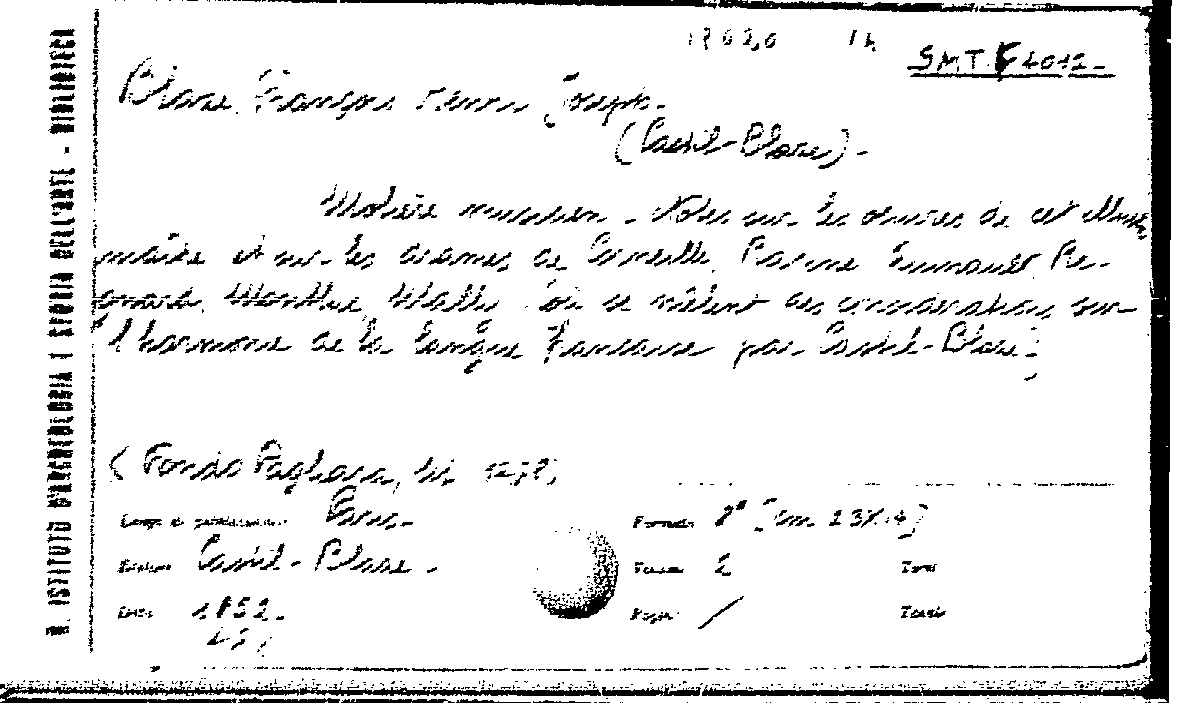 R. ISTITUTO D'ARCHEOLOGIA E STORIA DELL'ARTE - BIBLIOTECA
S.M.T. F 4012-
Blaze, François Henri Joseph-
(Castil-Blaze)-
Molière musicien - Notes sur les œuvres de cet illustre
maître et sur les drames de Corneille, Racine, Quinault, Re-
gnard, Monthie, Mally où se mêlent des considérations sur
l'harmonie de la langue française par Castil-Blaze-
(Fondo Pagliara,
Luogo di pubblicazione Paris-
Formato 8° [cm 23x14]
Editore Castil-Blaze-
Volumi 2
Data 1852-
Pagine /
Tavole